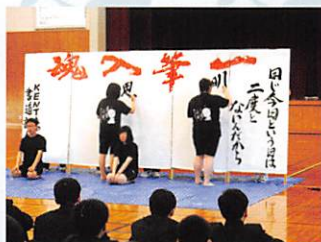 一筆入魂
同じ今日という日は
二度と
ないんだから
KENT
書道